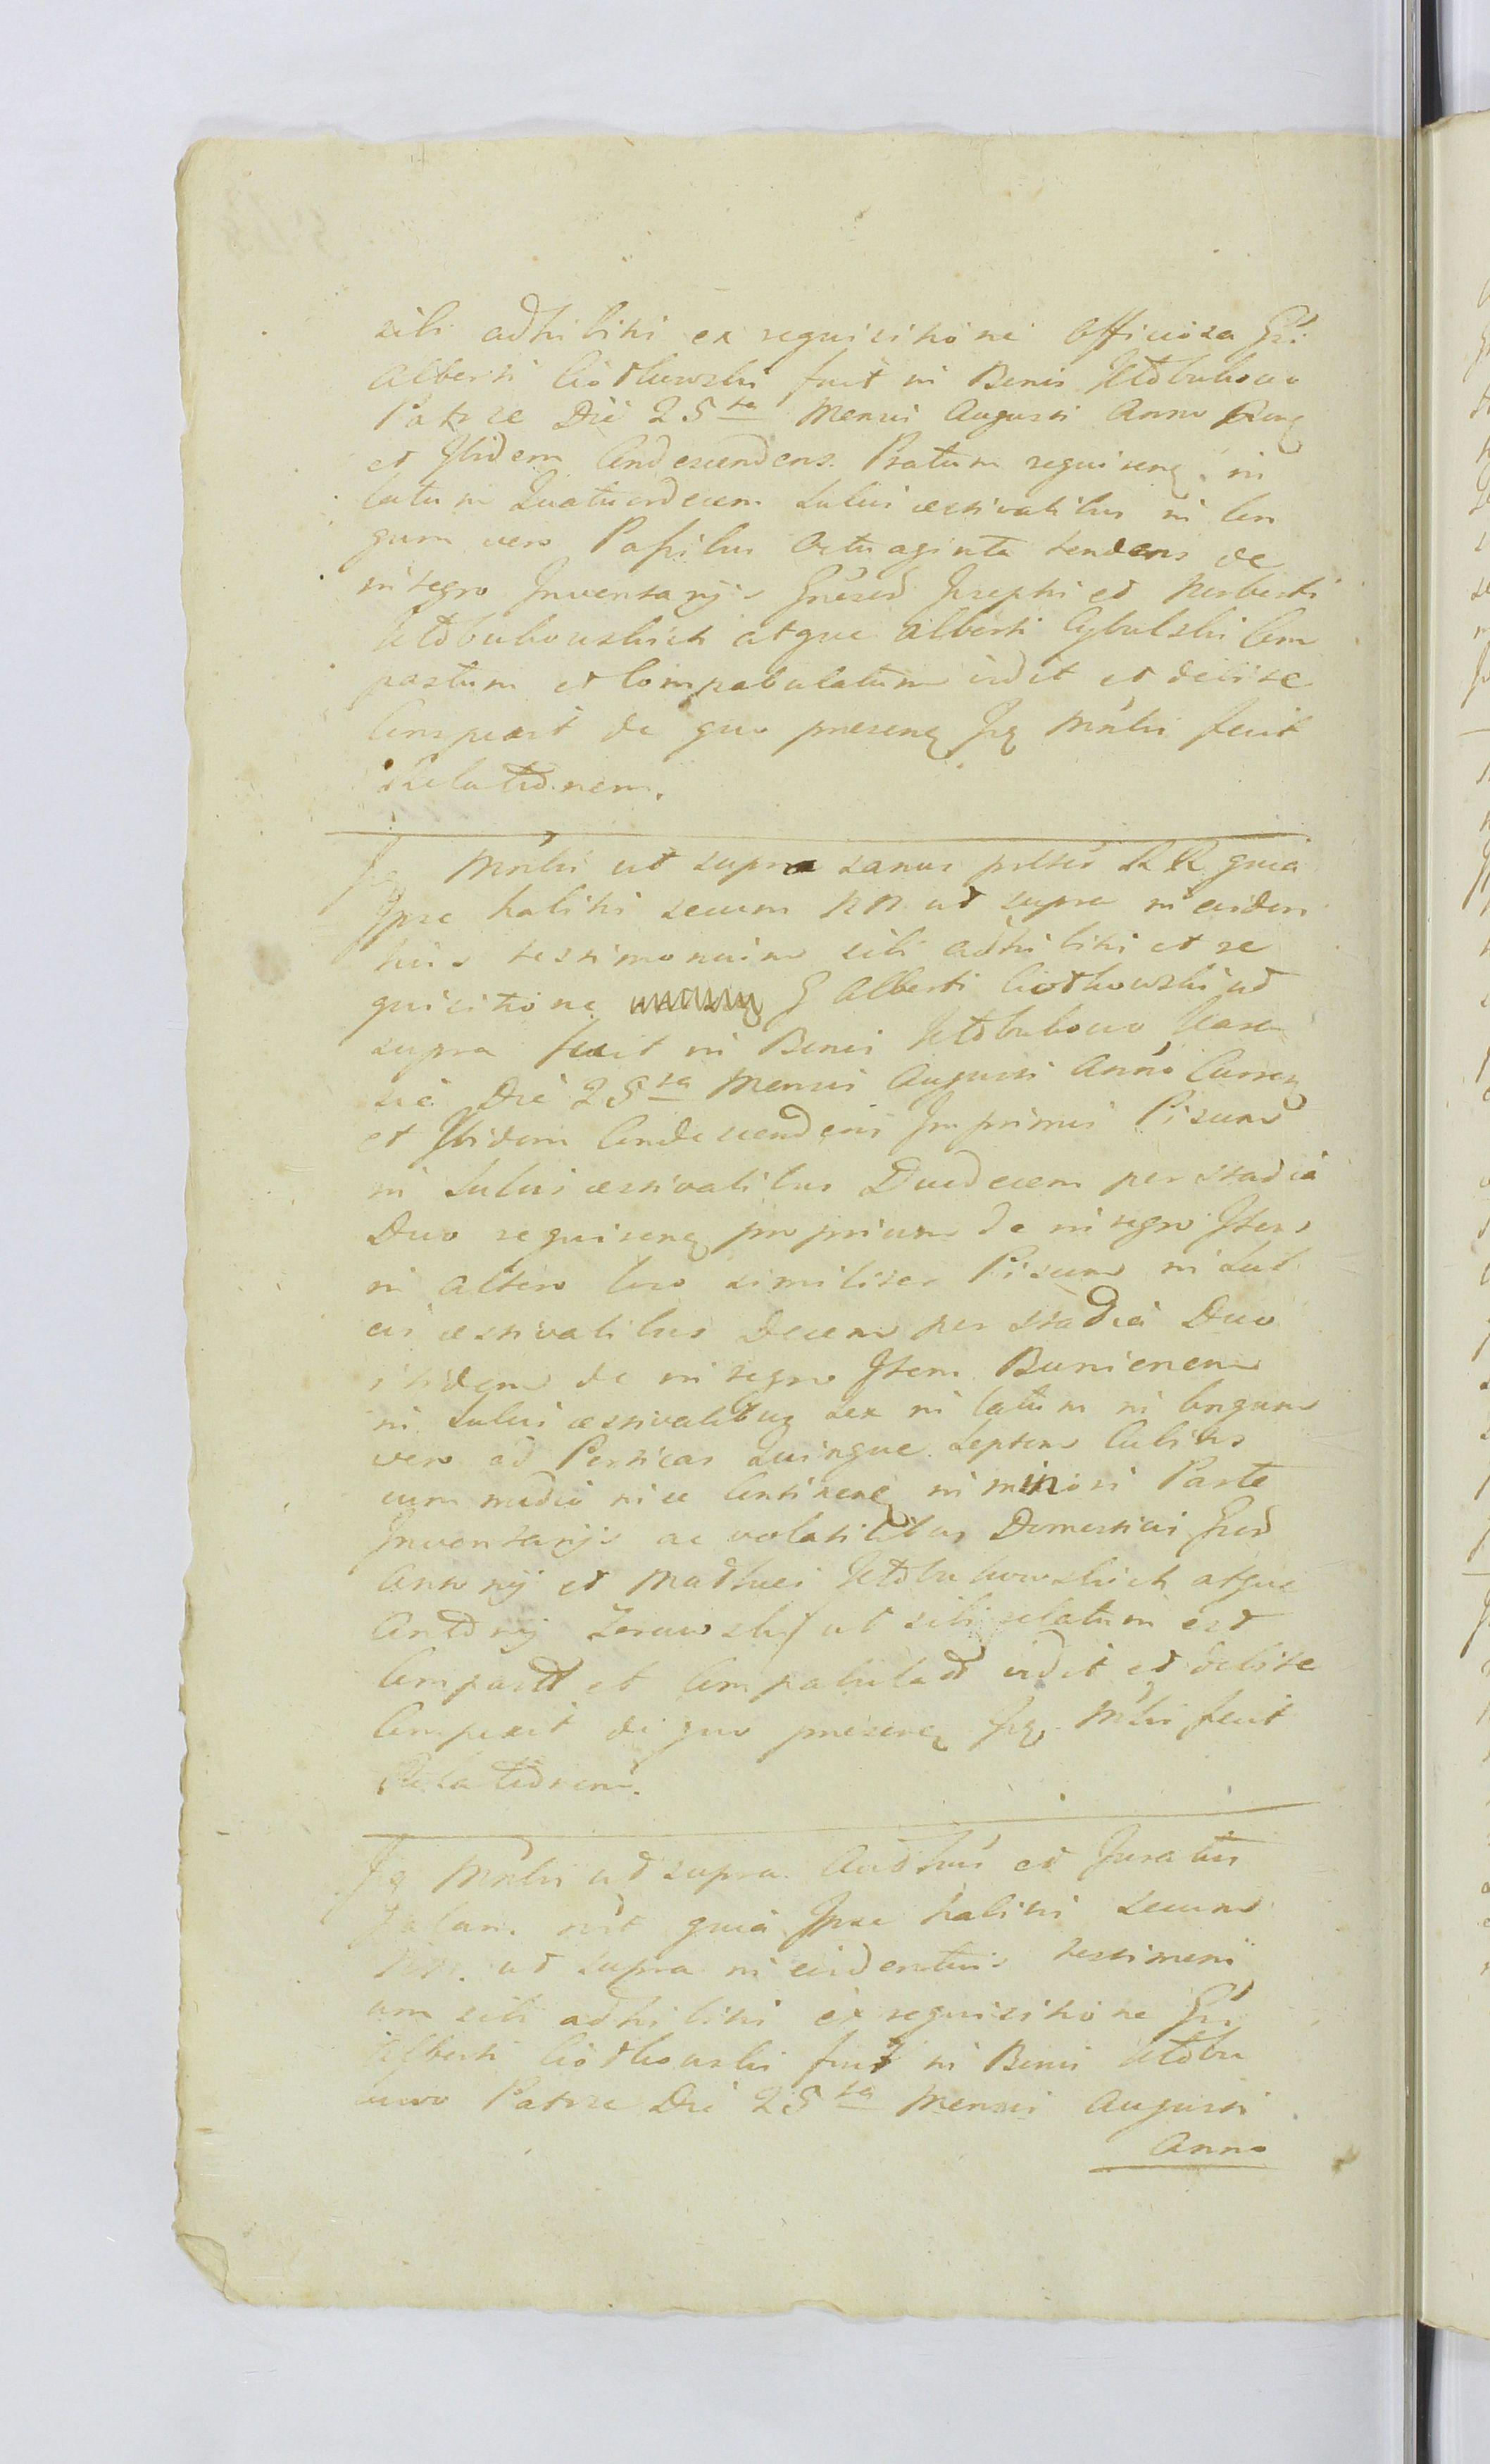 sibi adhibiti ex requisitione Officiosa Gsi:
Alberti Ciothowski fuit in Bonis
Patrze Die 25ta Mensis Augusti Anno
et Ibidem Condescendens. Pratum requireneq in
latum Quatuordecem Sulcis æstivalibus in lon
gum vero Passibus Octuaginta tendens de
integro Inventarijs Gnesed Josephi et Norberti
atque Alberti Cybulski Com
pastum et Compabulatum vidit et debite
Conspexit de quo preseneq Jsq Mnlis fecit
Relationem.
Jsq Mnlis ut supra sanus RR quia
Ipse habitis secum NN. ut supra in eviden
tius testimonium sibi adhibitis et re
quisitione G Alberti Ciothowski ut
supra fuit in Bonis
Die 25ta Mensis Augusti Anno Curreq
et Ibidem Condescendens Imprimis Pisum
in Sulcis æstivalibus Duedecem per stadia
Duo requireneq proprium de integro Item
in altero loco similiter Pisum in Sul
cis æstivalibus Decem per stadia Duo
itidem de integro Item
in Sulcis æstivalibuq Sex in latum in longum
vero ad Perticas Quinque Septem Cubitis
cum medio in se Contineneq in minori Parte
Inventarijs ac volatilibus Domesticis Gsed
Antonij et Mathæi atque
Antonij ut sibi relatum est
Compast et Compabulat vidit et debite
Conspexit de quo preseneq Jsq Mnlis fecit
Relationem.
Jsq Mnlis ut supra Authus et Juratus
palam. rcit quia Ipse habitis secum
NN. ut supra in evidentius testimoni
um sibi adhibitis ex requisitione Gsi
Alberti Ciothowski fuit in Bonis
Patrze Die 25ta Mensis Augusti
Anno